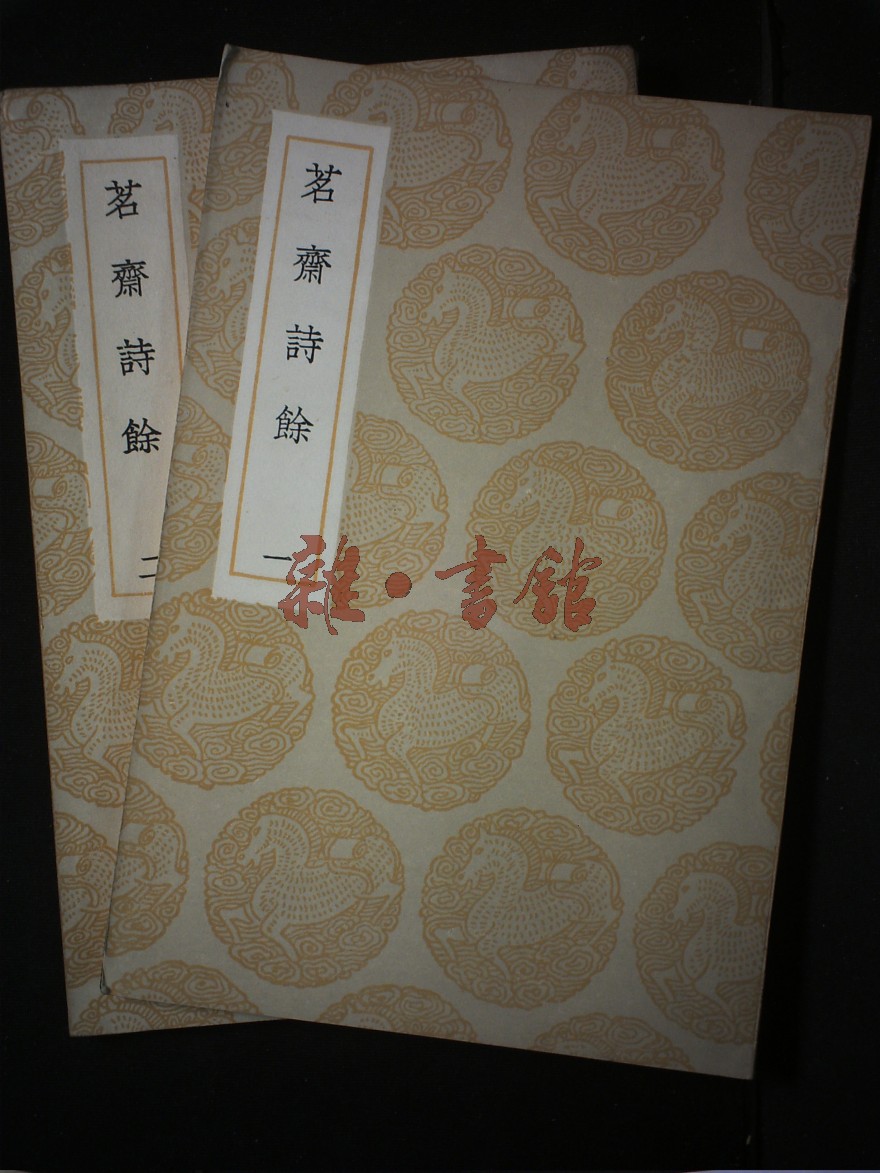 茗齋詩餘
一
茗齋詩餘
二
雜·書館